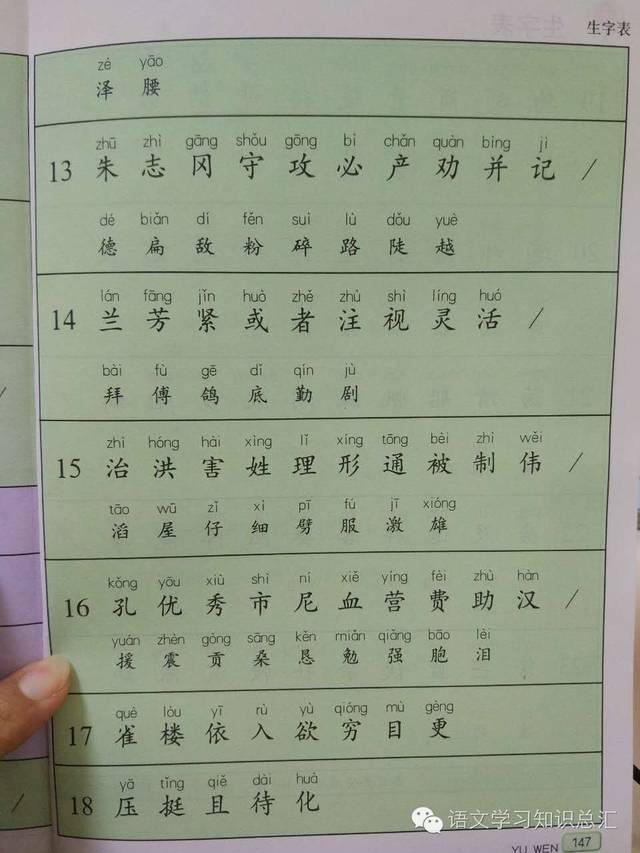 生字表
zé yāo
泽 腰
zhū zhì gāng shǒu gōng bì chǎn quàn bìng jì
13 朱 志 冈 守 攻 必 产 劝 并 记 /
dé biǎn dí fěn suì lù dǒu yuè
德 扁 敌 粉 碎 路 陡 越
lán fāng jǐn huò zhě zhù shì líng huó
14 兰 芳 紧 或 者 注 视 灵 活 /
bài fù gē dǐ qín jù
拜 傅 鸽 底 勤 剧
zhì hóng hài xìng lǐ xíng tōng bèi zhì wěi
15 治 洪 害 姓 理 形 通 被 制 伟 /
tāo wū zǐ xì pī fú jī xióng
滔 屋 仔 细 劈 服 激 雄
kǒng yōu xiù shì ní xiě yíng fèi zhù hàn
16 孔 优 秀 市 尼 血 营 费 助 汉 /
yuán zhèn gòng sāng kěn miǎn qiǎng bāo lèi
援 震 贡 桑 恳 勉 强 胞 泪
què lóu yī rù yù qióng mù gèng
17 雀 楼 依 入 欲 穷 目 更
yā tǐng qiě dài huà
18 压 挺 且 待 化
语文学习知识总汇
YU WEN 147